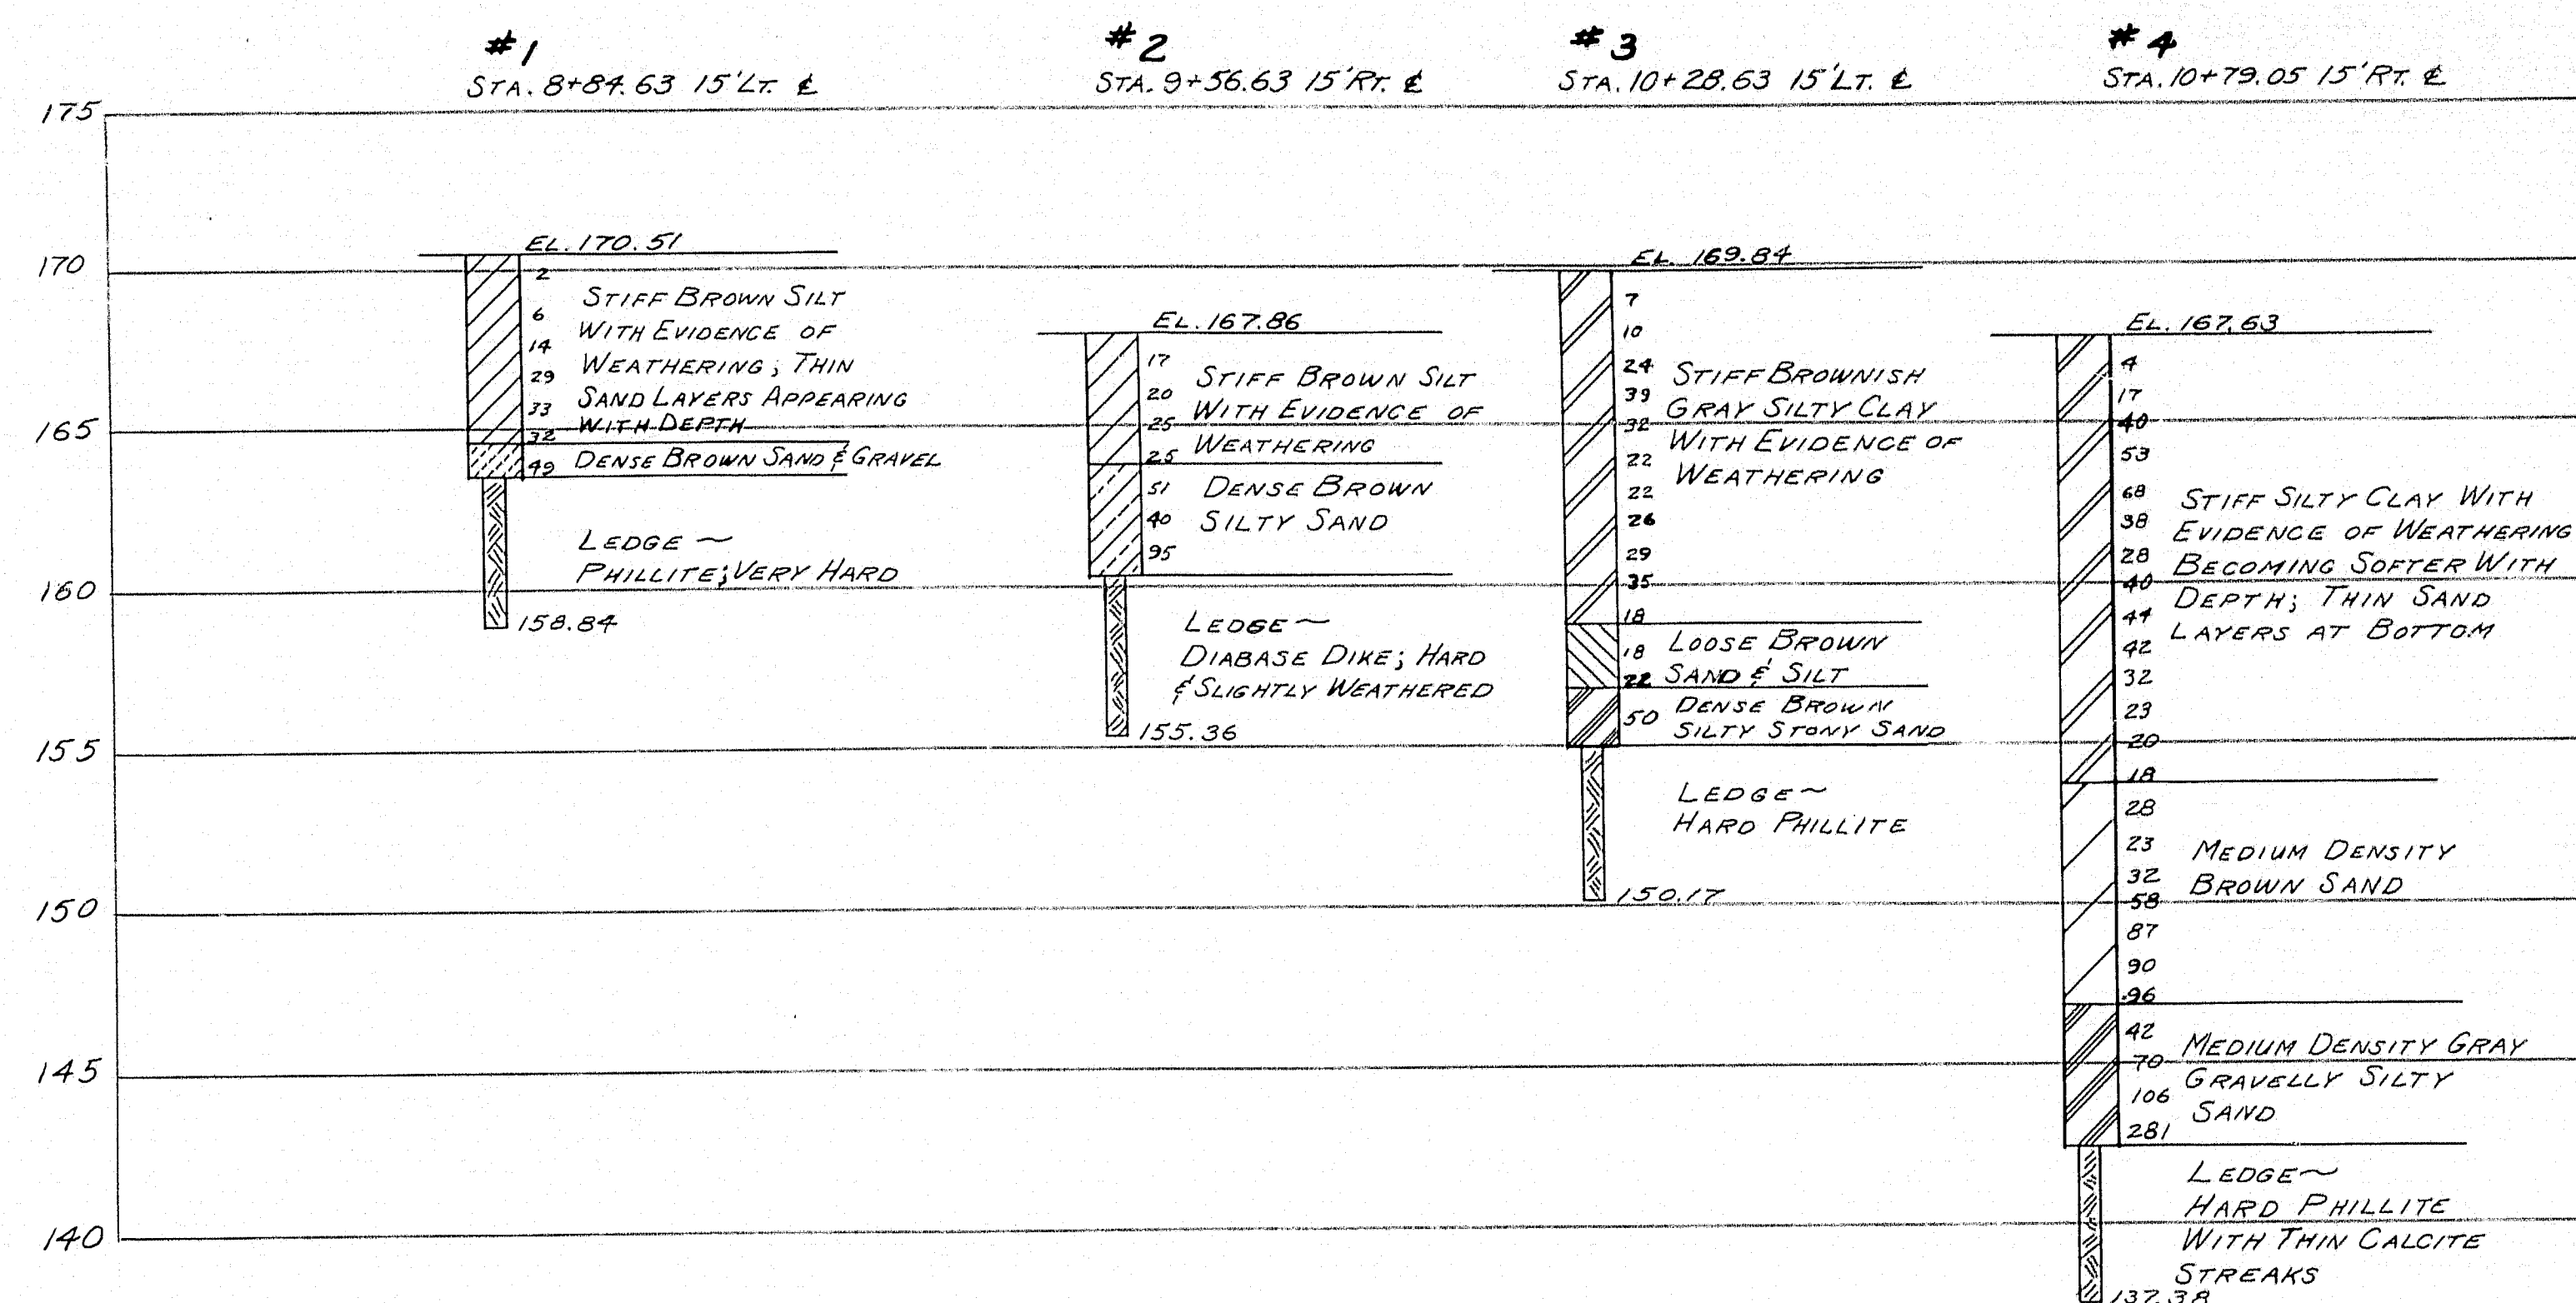 #1
STA. 8+84.63 15' LT. ℄
#2
STA. 9+56.63 15' RT. ℄
#3
STA. 10+28.63 15' LT. ℄
#4
STA. 10+79.05 15' RT. ℄
175
170
165
160
155
150
145
140
EL. 170.51
2
6
14
29
33
32
49
STIFF BROWN SILT
WITH EVIDENCE OF
WEATHERING; THIN
SAND LAYERS APPEARING
WITH DEPTH
DENSE BROWN SAND & GRAVEL
LEDGE ~
PHILLITE; VERY HARD
158.84
EL. 167.86
17
20
25
25
51
40
95
STIFF BROWN SILT
WITH EVIDENCE OF
WEATHERING
DENSE BROWN
SILTY SAND
LEDGE ~
DIABASE DIKE; HARD
& SLIGHTLY WEATHERED
155.36
EL. 169.84
7
10
24
39
32
22
22
26
29
35
18
18
22
50
STIFF BROWNISH
GRAY SILTY CLAY
WITH EVIDENCE OF
WEATHERING
LOOSE BROWN
SAND & SILT
DENSE BROWN
SILTY STONY SAND
LEDGE ~
HARD PHILLITE
150.17
EL. 167.63
4
17
40
53
68
38
28
40
44
42
32
23
20
18
28
23
32
58
87
90
96
42
70
106
281
STIFF SILTY CLAY WITH
EVIDENCE OF WEATHERING
BECOMING SOFTER WITH
DEPTH; THIN SAND
LAYERS AT BOTTOM
MEDIUM DENSITY
BROWN SAND
MEDIUM DENSITY GRAY
GRAVELLY SILTY
SAND
LEDGE ~
HARD PHILLITE
WITH THIN CALCITE
STREAKS
137.38